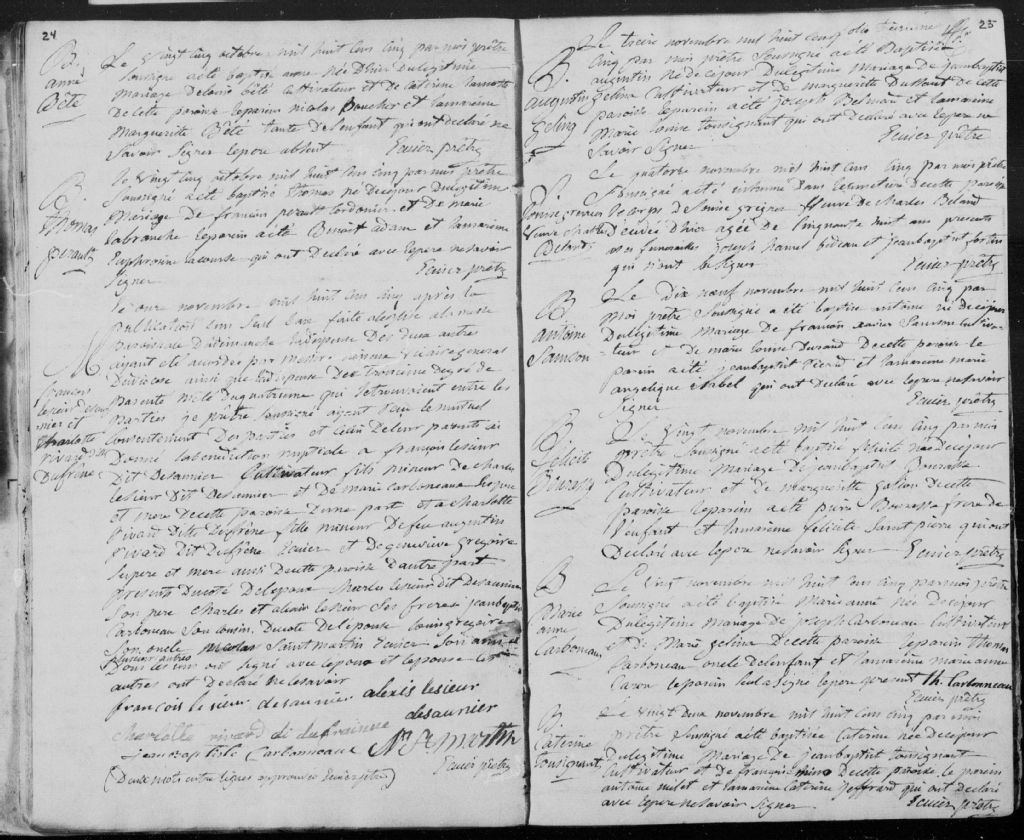 24
B.
anne
Bête
Le vingt cinq octobre mil huit cens cinq par moi prêtre
soussigné a été baptisé anne née d'hier du légitime
mariage de louis bête cultivateur et de Caterine lamotte
de cette paroisse le parein nicolas Boucher et la mareine
Marguerite Bête tante de l'enfant qui ont declaré ne
savoir signer le pere absent Ecuier prêtre
B.
thomas
perault
le vingt cinq octobre mil huit cens cinq par moi prêtre
soussigné a été baptisé thomas né de ce jour du légitime
mariage de francois perault cordonier et de marie
labranche le parein a été Benoit adam et la mareine
Euphrosine lacourse qui ont declaré avec le pere ne savoir
signer Ecuier prêtre
M
francois
le sieur desau
nier et
charlotte
rivard dite
Dufrêne
le onze novembre mil huit cens cinq après la
publication d'un seul ban faite au prône de la messe
paroissiale du dimanche la dispense des deux autres
ayant été accordée par vicaire general
du diocese ainsi que la dispense du troisième degré de
parenté mêlé du quatrième qui se trouvaient entre les
parties je prêtre soussigné ayant pris le mutuel
consentement des parties et celui de leur parents ai
donné la bénédiction nuptiale a françois lesieur
dit desaunier Cultivateur fils mineur de charles
lesieur dit desaunier et de marie carboneaux ses pere
et mere de cette paroisse d'une part et a charlotte
rivard ditte Dufrêne fille mineur de feu augustin
rivard dit dufrêne Ecuier et de genevieve gregoire
ses pere et mere aussi de cette paroisse d'autre part
présents du coté de l'epoux charles lesieur dit desaunier
son pere charles et alexis lesieur ses freres jean baptiste
carboneau son cousin. du coté de l'epouse louis gregoire
son oncle nicolas saint martin Ecuier son ami et
plusieurs autres
dont les uns ont signé avec l'epoux et l'epouse les
autres ont declaré ne le savoir
francois le sieur desaunie alexis lesieur
desaunier
charlotte rivard di du frainne
jean baptiste Carbonneaux Ns St martin
Ecuier prêtre
(Deux mots entre lignes approuvés Ecuier ptre)
25
B.
augustin
gelina
Le treize novembre mil huit cens cinq
par moi prêtre soussigné a été Baptisé
augustin né de ce jour du légitime mariage de jean baptiste
gelina Cultivateur et de marguerite Dussault de cette
paroisse le parein a été joseph Belmart et la mareine
Marie louise tousignant qui ont declaré avec le pere ne
savoir signer Ecuier prêtre
S.
louise grenier
veuve charle
Beland
Le quatorze novembre mil huit cens cinq par moi prêtre
soussigné a été inhumé dans le cimetiere de cette paroisse
le corps de louise grenier veuve de charles Beland
décédée d'hier agée de cinquante huit ans presents
aux funerailles joseph hamel bedeau et jean baptiste fortin
qui n'ont su signer Ecuier prêtre
B.
antoine
Samson
Le dix neuf novembre mil huit cens cinq par
moi prêtre soussigné a été baptisé antoine né de ce jour
du légitime mariage de francois xavier Samson cultiva
teur et de marie louise Durand de cette paroisse le
parein a été jean baptiste Picard et la mareine marie
angelique isabel qui ont declaré avec le pere ne savoir
signer Ecuier prêtre
B.
felicité
Bourassa
Le vingt novembre mil huit cens cinq par moi
prêtre soussigné a été baptisé felicité née de ce jour
du légitime mariage de jean baptiste Bourassa
Cultivateur et de marguerite de cette
paroisse le parein a été pierre Bourassa frere de
l'enfant et la mareine felicité saint pierre qui ont
declaré avec le pere ne savoir signer Ecuier prêtre
B
Marie
anne
Carboneau
Le vingt novembre mil huit cens cinq par moi prêtre
soussigné a été baptisé Marie anne née de ce jour
du légitime mariage de joseph Carboneau cultivateur
et de Marie gelina de cette paroisse le parein thomas
Carboneau oncle de l'enfant et la mareine marie anne
Caron le parein seul a signé le pere present th. Carbonneau
Ecuier prêtre
B
Caterine
tousignant
Le vingt deux novembre mil huit cens cinq par moi
prêtre soussigné a été baptisée Caterine née de ce jour
du légitime mariage de jean baptiste tousignant
Cultivateur et de françoise de cette paroisse le parein
antoine milet et la mareine Caterine jeffrard qui ont declaré
avec le pere ne savoir signer Ecuier prêtre